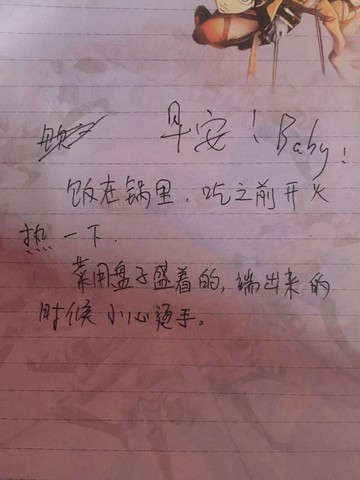 早安！Baby！
饭在锅里，吃之前开火
热一下．
菜用盘子盛着的，端出来的
时候小心烫手。